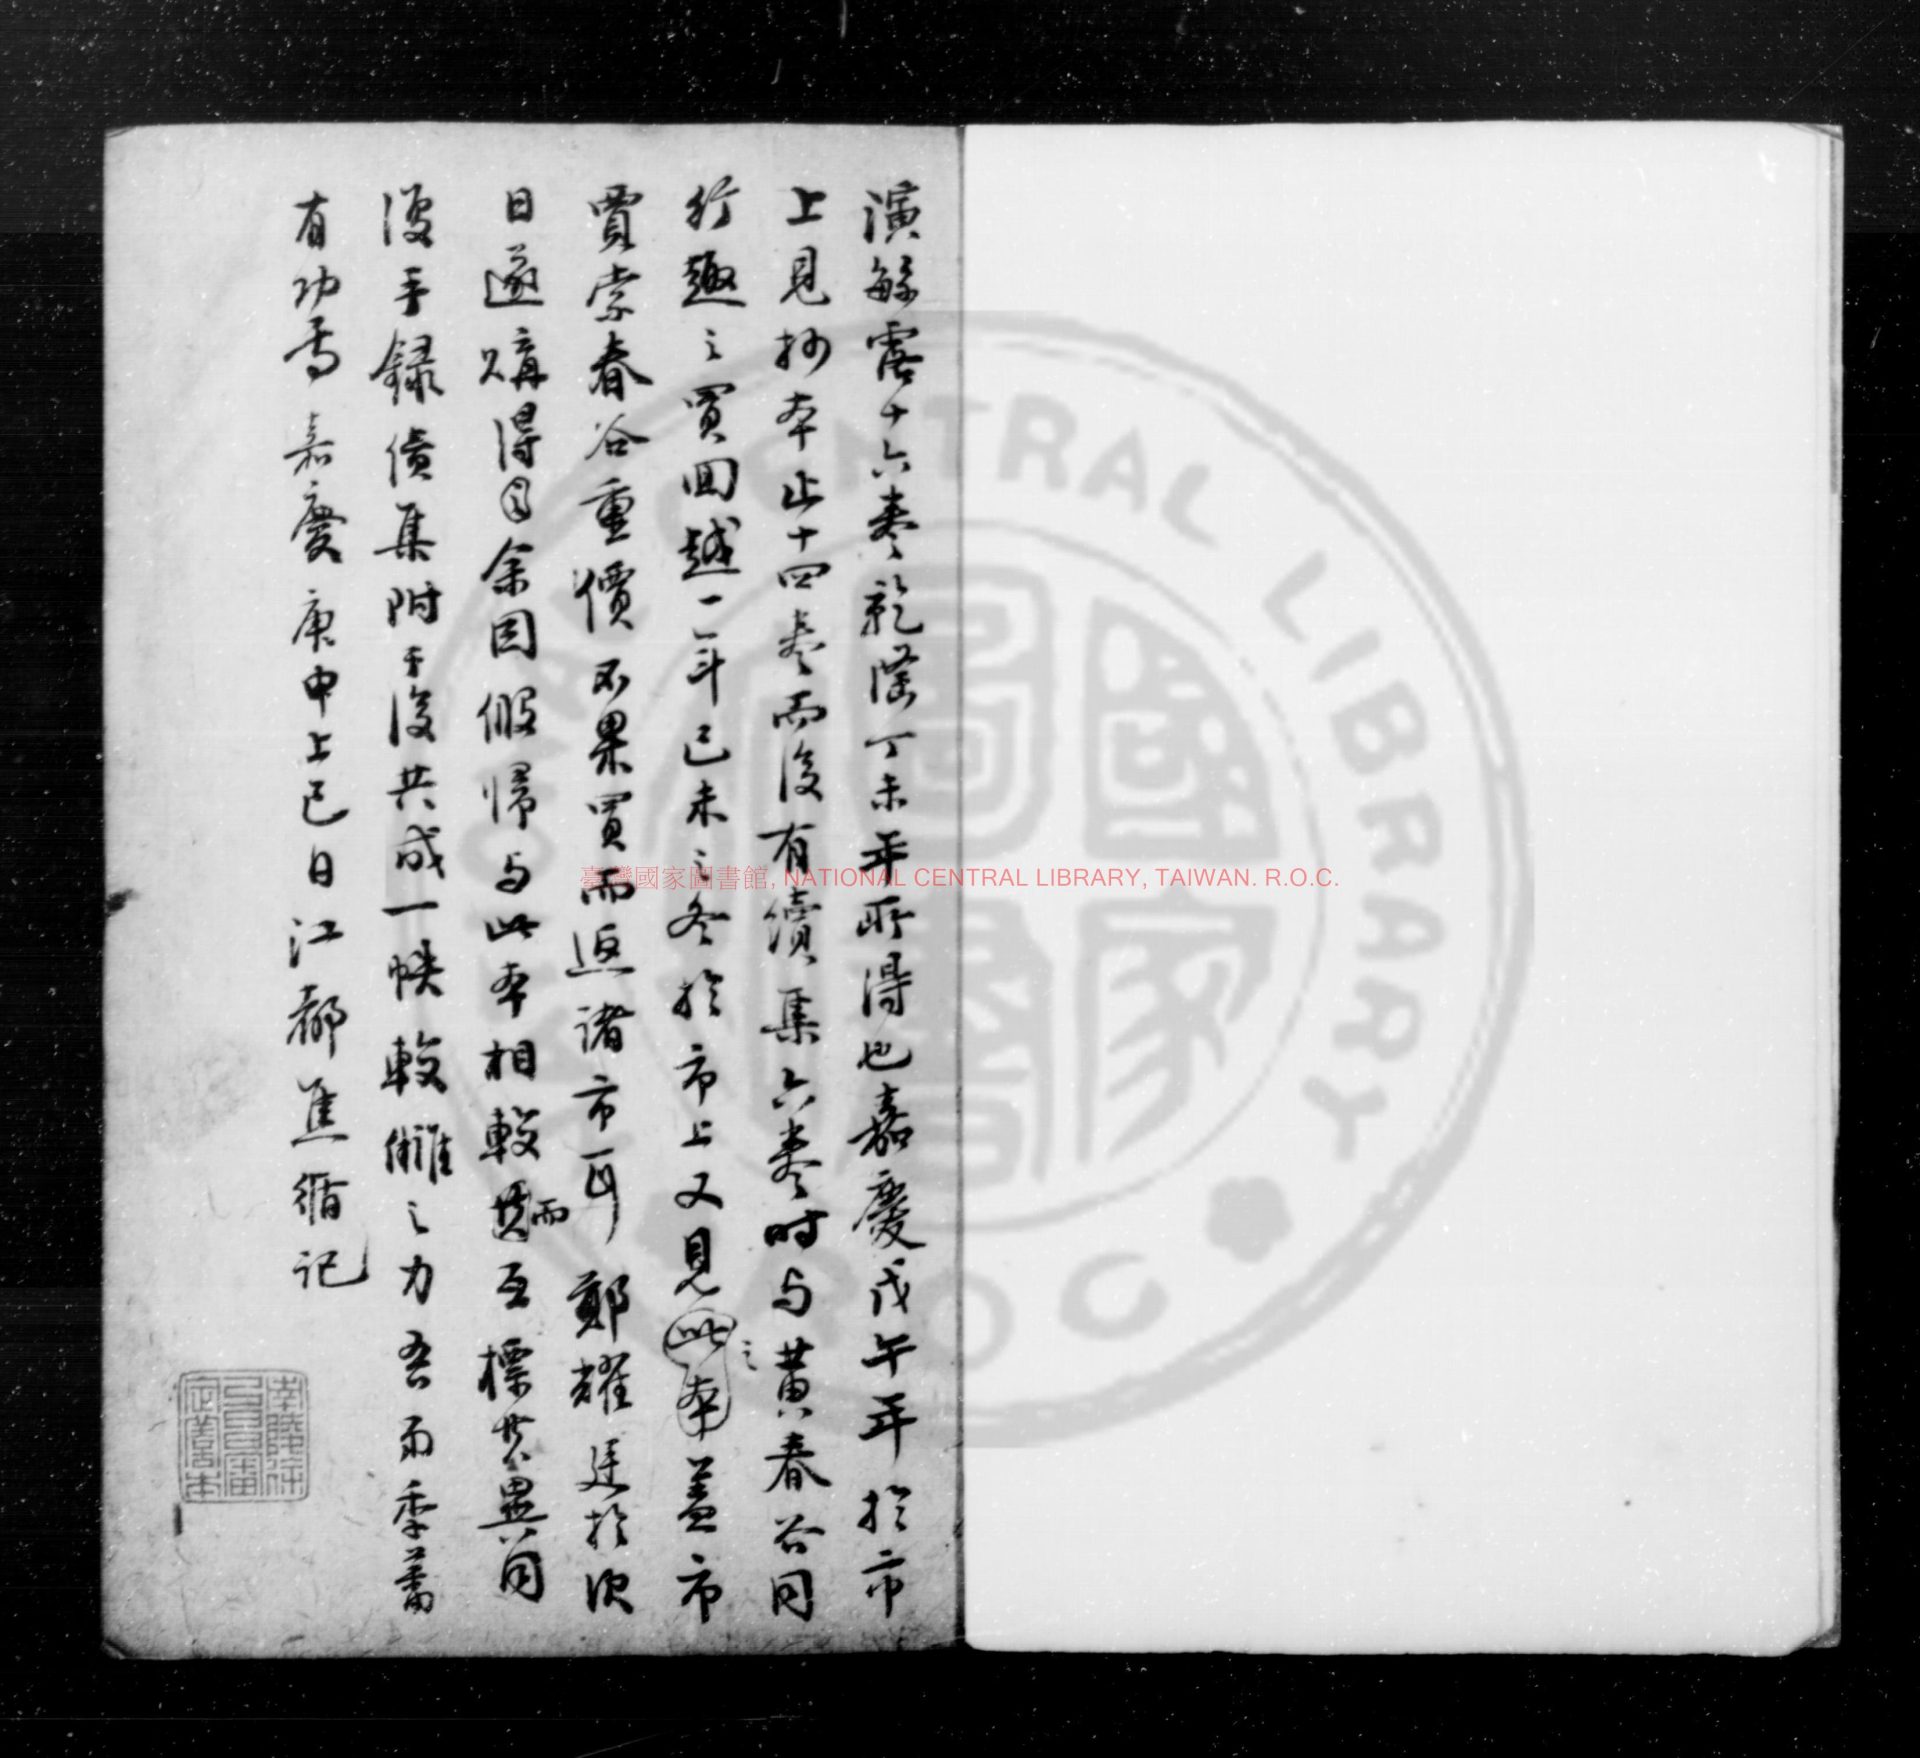 演繁露十六卷乾隆丁未年所得也嘉慶戊午年於市
上見抄本止十四卷而後有續集六卷時与黄春谷同
行趣之買回越一年己未之冬於市上又見此本之蓋市
賈索春谷重價不果買而返諸市耳鄭耀廷於次
日遂購得余因假歸与此本相較而互標其異同
復手録續集附于後共成一帙較讎之力吾雨季蕃
有功焉嘉慶庚申上巳日江都焦循記
南陵徐
乃昌審
定善本
臺灣國家圖書館, NATIONAL CENTRAL LIBRARY, TAIWAN. R.O.C.
CENTRAL LIBRARY
國家圖書